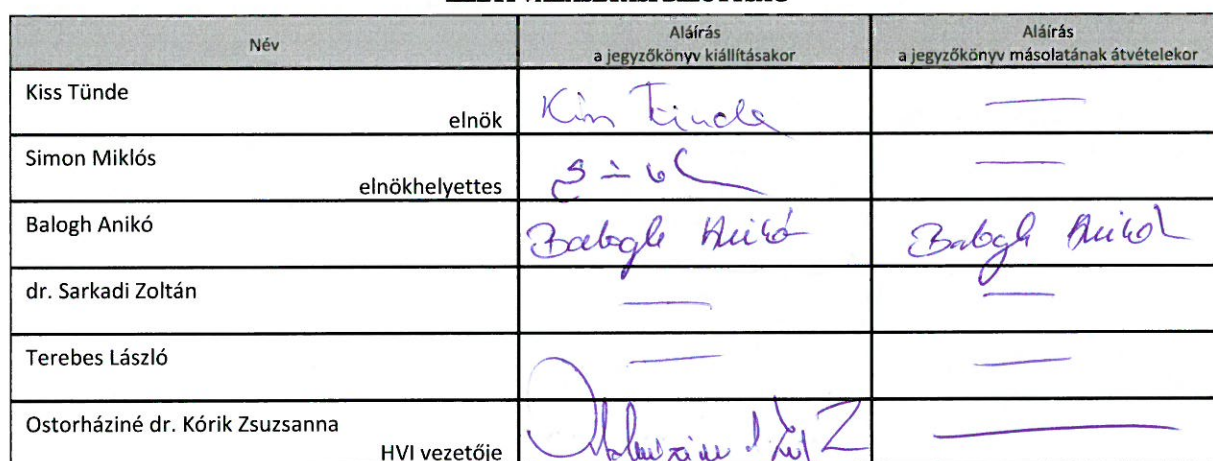 Név Aláírás Aláírás
a jegyzőkönyv kiállításakor a jegyzőkönyv másolatának átvételekor
Kiss Tünde Kiss Tünde —
elnök
Simon Miklós —
elnökhelyettes
Balogh Anikó Balogh Anikó Balogh Anikó
dr. Sarkadi Zoltán — —
Terebes László — —
Ostorháziné dr. Kórik Zsuzsanna —
HVI vezetője